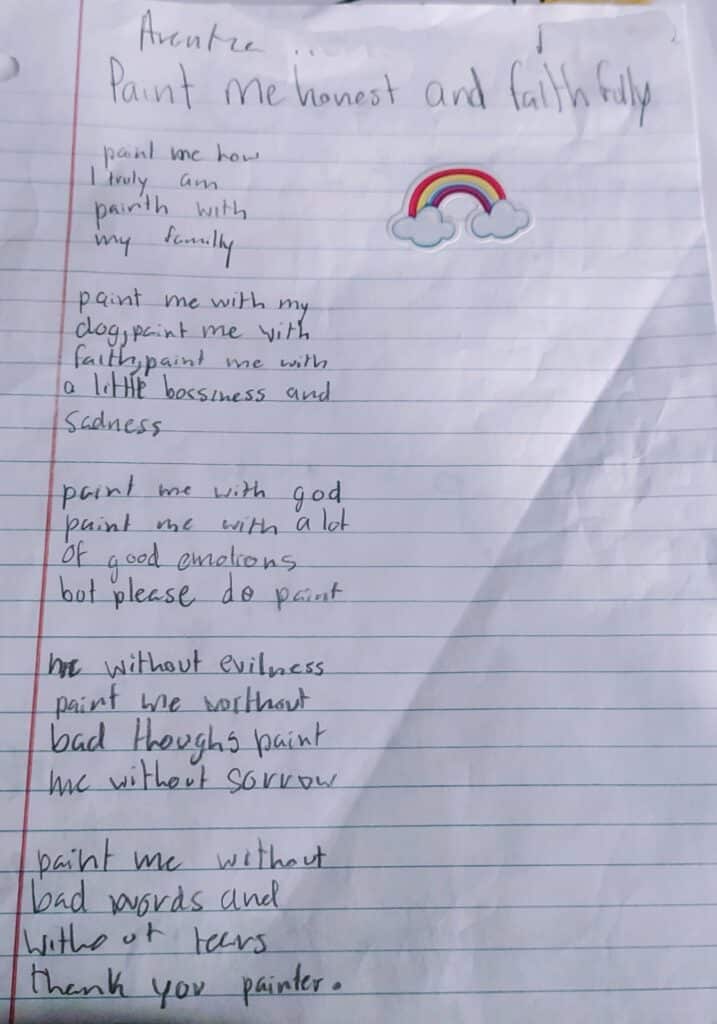 Paint me honest and faithfully
paint me how
I truly am
painth with
my familly
paint me with my
dog, paint me with
faith, paint me with
a little bossiness and
sadness
paint me with god
paint me with a lot
of good emotions
bot please do paint
me without evilness
paint me worthout
bad thoughs paint
me without sorrow
paint me without
bad words and
without tears
thank you painter.